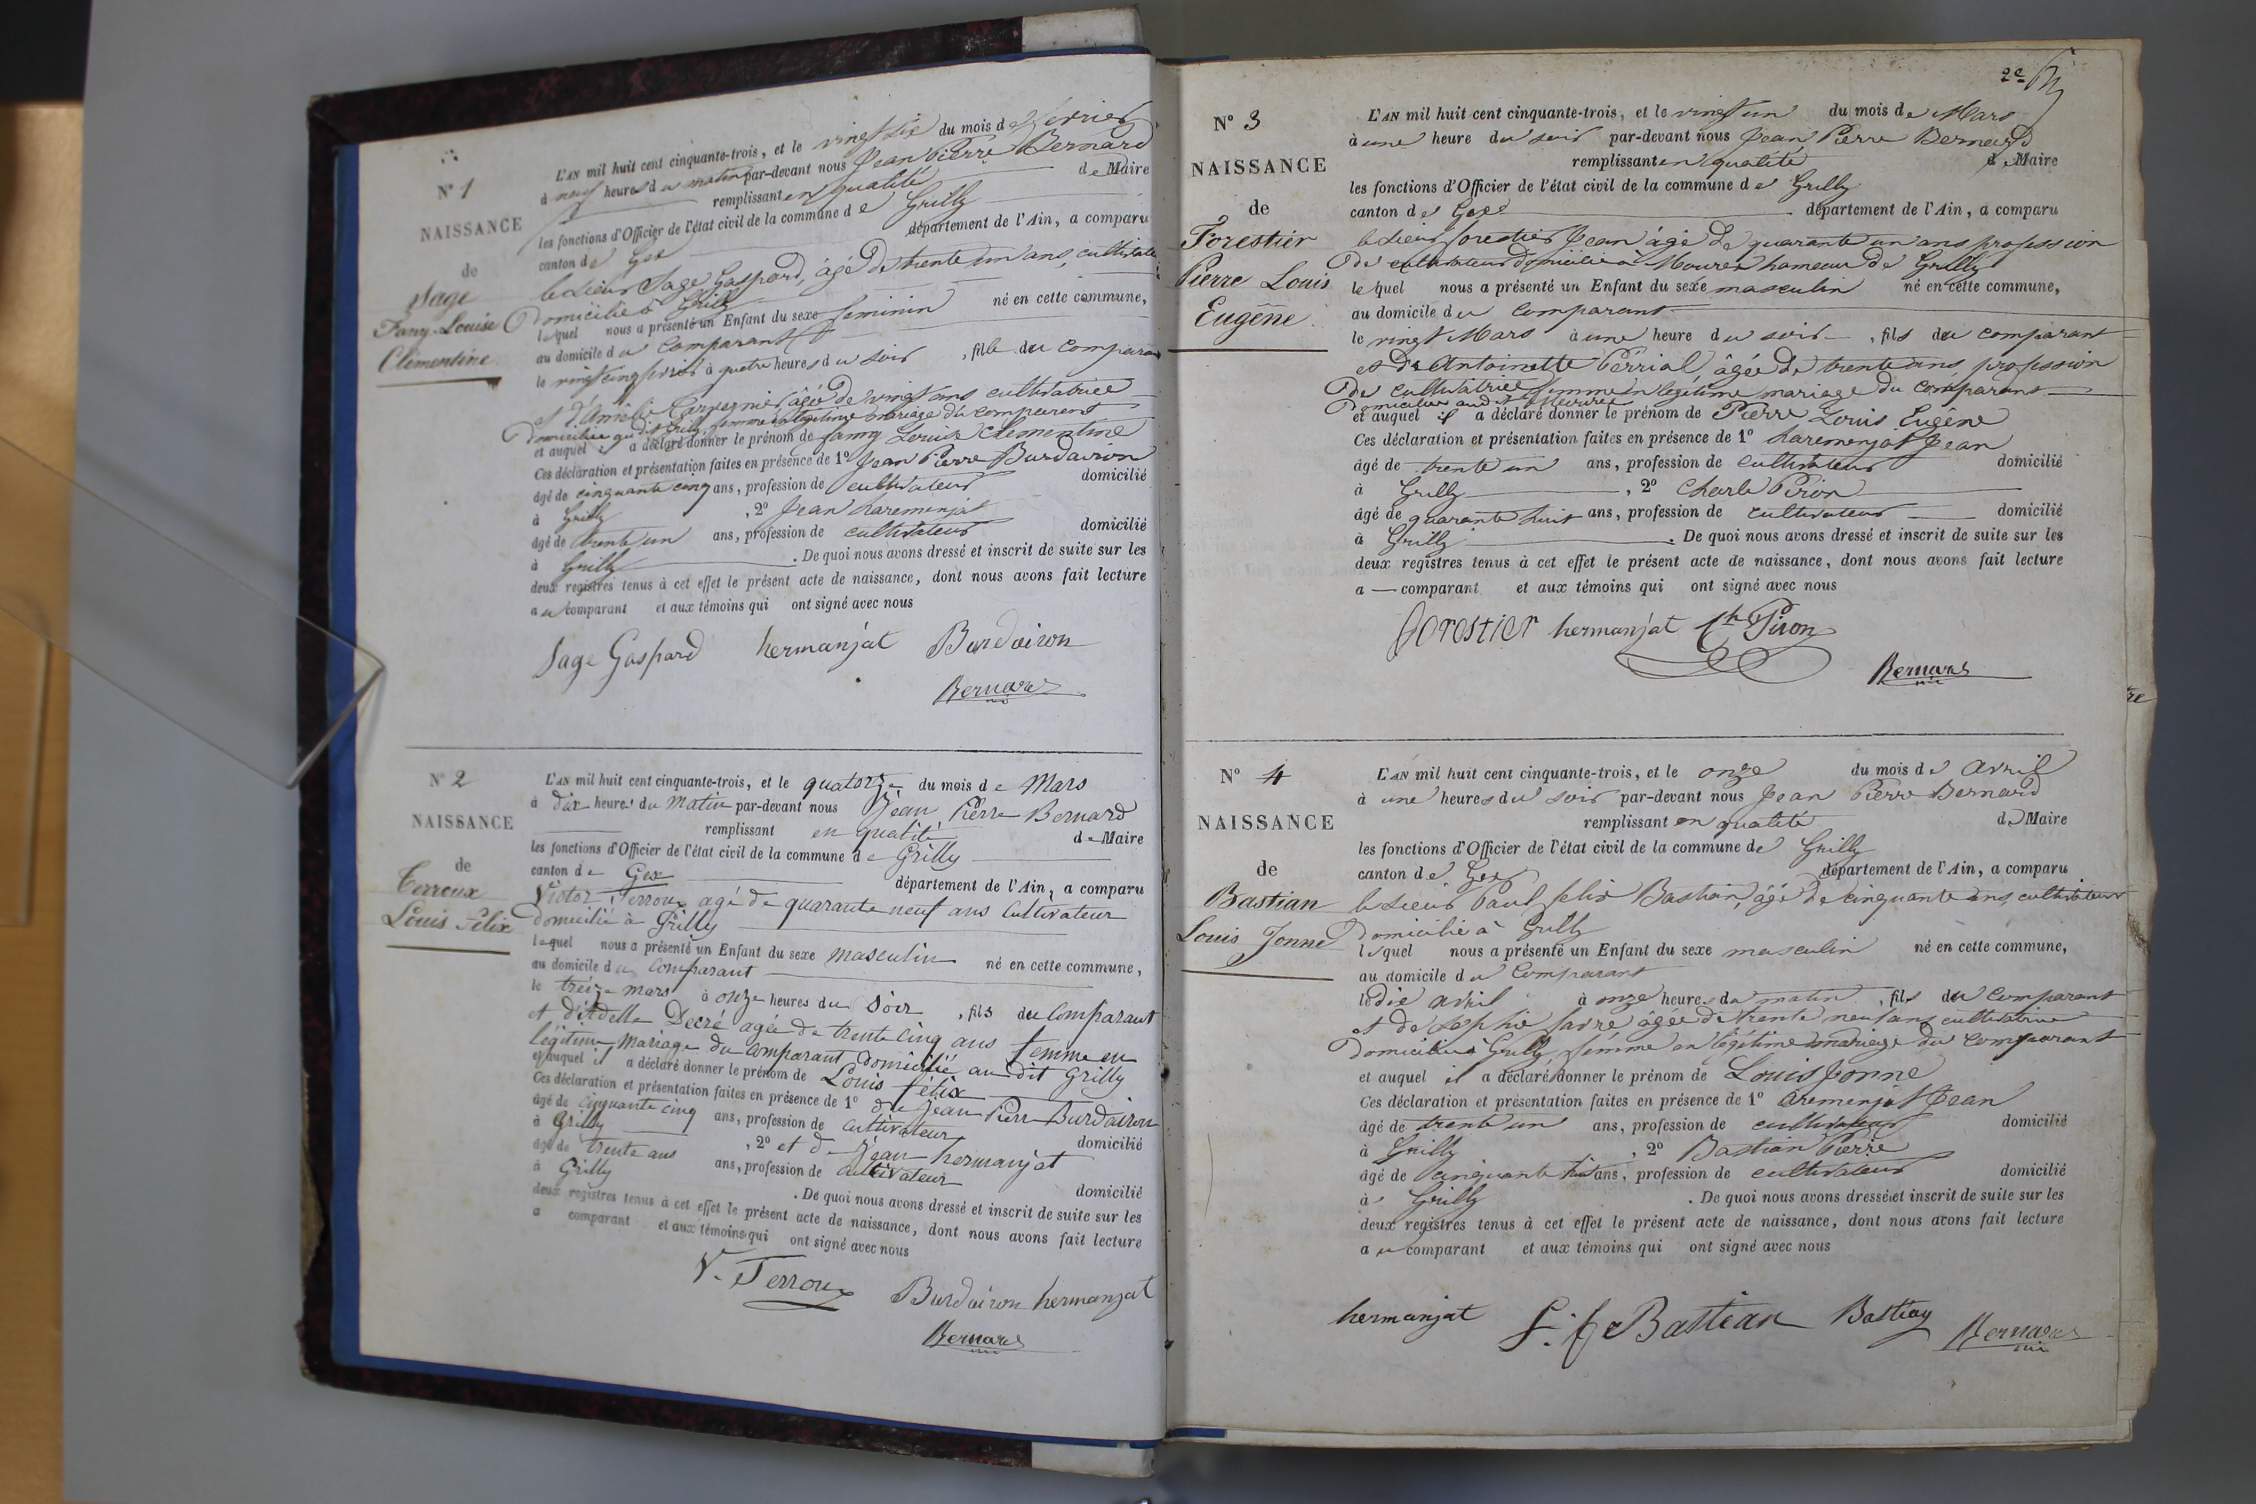 N° 1
NAISSANCE
de
Sage
Fany Louise
Clémentine
L'AN mil huit cent cinquante-trois, et le vingt six du mois de février
à neuf heures du matin par-devant nous Jean Pierre Bernard
remplissant en qualité de Maire
les fonctions d'Officier de l'état civil de la commune de Grilly
canton de Gex département de l'Ain, a comparu
le sieur Sage Gaspard, âgé de trente un ans, cultivate
domicilié à Grilly
lequel nous a présenté un Enfant du sexe feminin né en cette commune,
au domicile du comparant
le vingt cinq février à quatre heures du soir, fille du comparant
et d'Amélie âgée de vingt ans cultivatrice
domiciliée au dit Grilly, femme en légitime mariage du comparant
et auquel il a déclaré donner le prénom de fanny Louise Clementine
Ces déclaration et présentation faites en présence de 1° Jean Pierre Burdairon
âgé de cinquante cinq ans, profession de cultivateur domicilié
à Grilly, 2° Jean haremenjat
âgé de trente un ans, profession de cultivateur domicilié
à Grilly. De quoi nous avons dressé et inscrit de suite sur les
deux registres tenus à cet effet le présent acte de naissance, dont nous avons fait lecture
au comparant et aux témoins qui ont signé avec nous
Sage Gaspard hermanjat Burdairon
Bernard
N° 2
NAISSANCE
de
Terroux
Louis Félix
L'AN mil huit cent cinquante-trois, et le quatorze du mois de Mars
à dix heures du Matin par-devant nous Jean Pierre Bernard
remplissant en qualité de Maire
les fonctions d'Officier de l'état civil de la commune de Grilly
canton de Gex département de l'Ain, a comparu
Victor Terroux agé de quarante neuf ans Cultivateur
domicilié à Grilly
lequel nous a présenté un Enfant du sexe masculin né en cette commune,
au domicile du comparant
le treize mars à onze heures du soir, fils du comparant
et d'Adelle Decré agée de trente cinq ans femme en
légitime mariage du comparant domicilié au dit Grilly
et auquel il a déclaré donner le prénom de Louis félix
Ces déclaration et présentation faites en présence de 1° de Jean Pierre Burdairon
âgé de cinquante cinq ans, profession de cultivateur domicilié
à Grilly, 2° et de Jean hermanjat
âgé de trente ans ans, profession de cultivateur domicilié
à Grilly. De quoi nous avons dressé et inscrit de suite sur les
deux registres tenus à cet effet le présent acte de naissance, dont nous avons fait lecture
a comparant et aux témoins qui ont signé avec nous
V. Terroux Burdairon hermanjat
Bernard
2e
N° 3
NAISSANCE
de
Forestier
Pierre Louis
Eugêne
L'AN mil huit cent cinquante-trois, et le vingt un du mois de Mars
à une heure du soir par-devant nous Jean Pierre Bernard
remplissant en qualité de Maire
les fonctions d'Officier de l'état civil de la commune de Grilly
canton de Gex département de l'Ain, a comparu
le sieur forestier Jean âgé de quarante un ans profession
de cultivateur domicilié à Mourex hameau de Grilly
lequel nous a présenté un Enfant du sexe masculin né en cette commune,
au domicile du comparant
le vingt Mars à une heure du soir, fils du comparant
et de Antoinette Perrial, âgée de trente ans, profession
de cultivatrice femme en légitime mariage du comparant
domiciliée au dit Mourex
et auquel il a déclaré donner le prénom de Pierre Louis Eugêne
Ces déclaration et présentation faites en présence de 1° haremenjat Jean
âgé de trente un ans, profession de cultivateur domicilié
à Grilly, 2° Charle Piron
âgé de quarante huit ans, profession de cultivateur domicilié
à Grilly. De quoi nous avons dressé et inscrit de suite sur les
deux registres tenus à cet effet le présent acte de naissance, dont nous avons fait lecture
a comparant et aux témoins qui ont signé avec nous
forestier hermanjat Ch Piron
Bernard
N° 4
NAISSANCE
de
Bastian
Louis Jonne
L'AN mil huit cent cinquante-trois, et le onze du mois de Avril
à une heures du soir par-devant nous Jean Pierre Bernard
remplissant en qualité de Maire
les fonctions d'Officier de l'état civil de la commune de Grilly
canton de Gex département de l'Ain, a comparu
le sieur Paul felix Bastian, âgé de cinquante ans, cultivateur
domicilié à Grilly
lequel nous a présenté un Enfant du sexe masculin né en cette commune,
au domicile du Comparant
le dix avril à onze heures du matin, fils du comparant
et de Sophie favre âgée de trente neuf ans cultivatrice
domiciliée à Grilly, femme en légitime mariage du comparant
et auquel il a déclaré donner le prénom de Louis Jonne
Ces déclaration et présentation faites en présence de 1° aremenjat Jean
âgé de trente un ans, profession de cultivateur domicilié
à Grilly, 2° Bastian Pierre
âgé de cinquante ans, profession de cultivateur domicilié
à Grilly. De quoi nous avons dressé et inscrit de suite sur les
deux registres tenus à cet effet le présent acte de naissance, dont nous avons fait lecture
au comparant et aux témoins qui ont signé avec nous
hermanjat Bastian Bastian Bernard